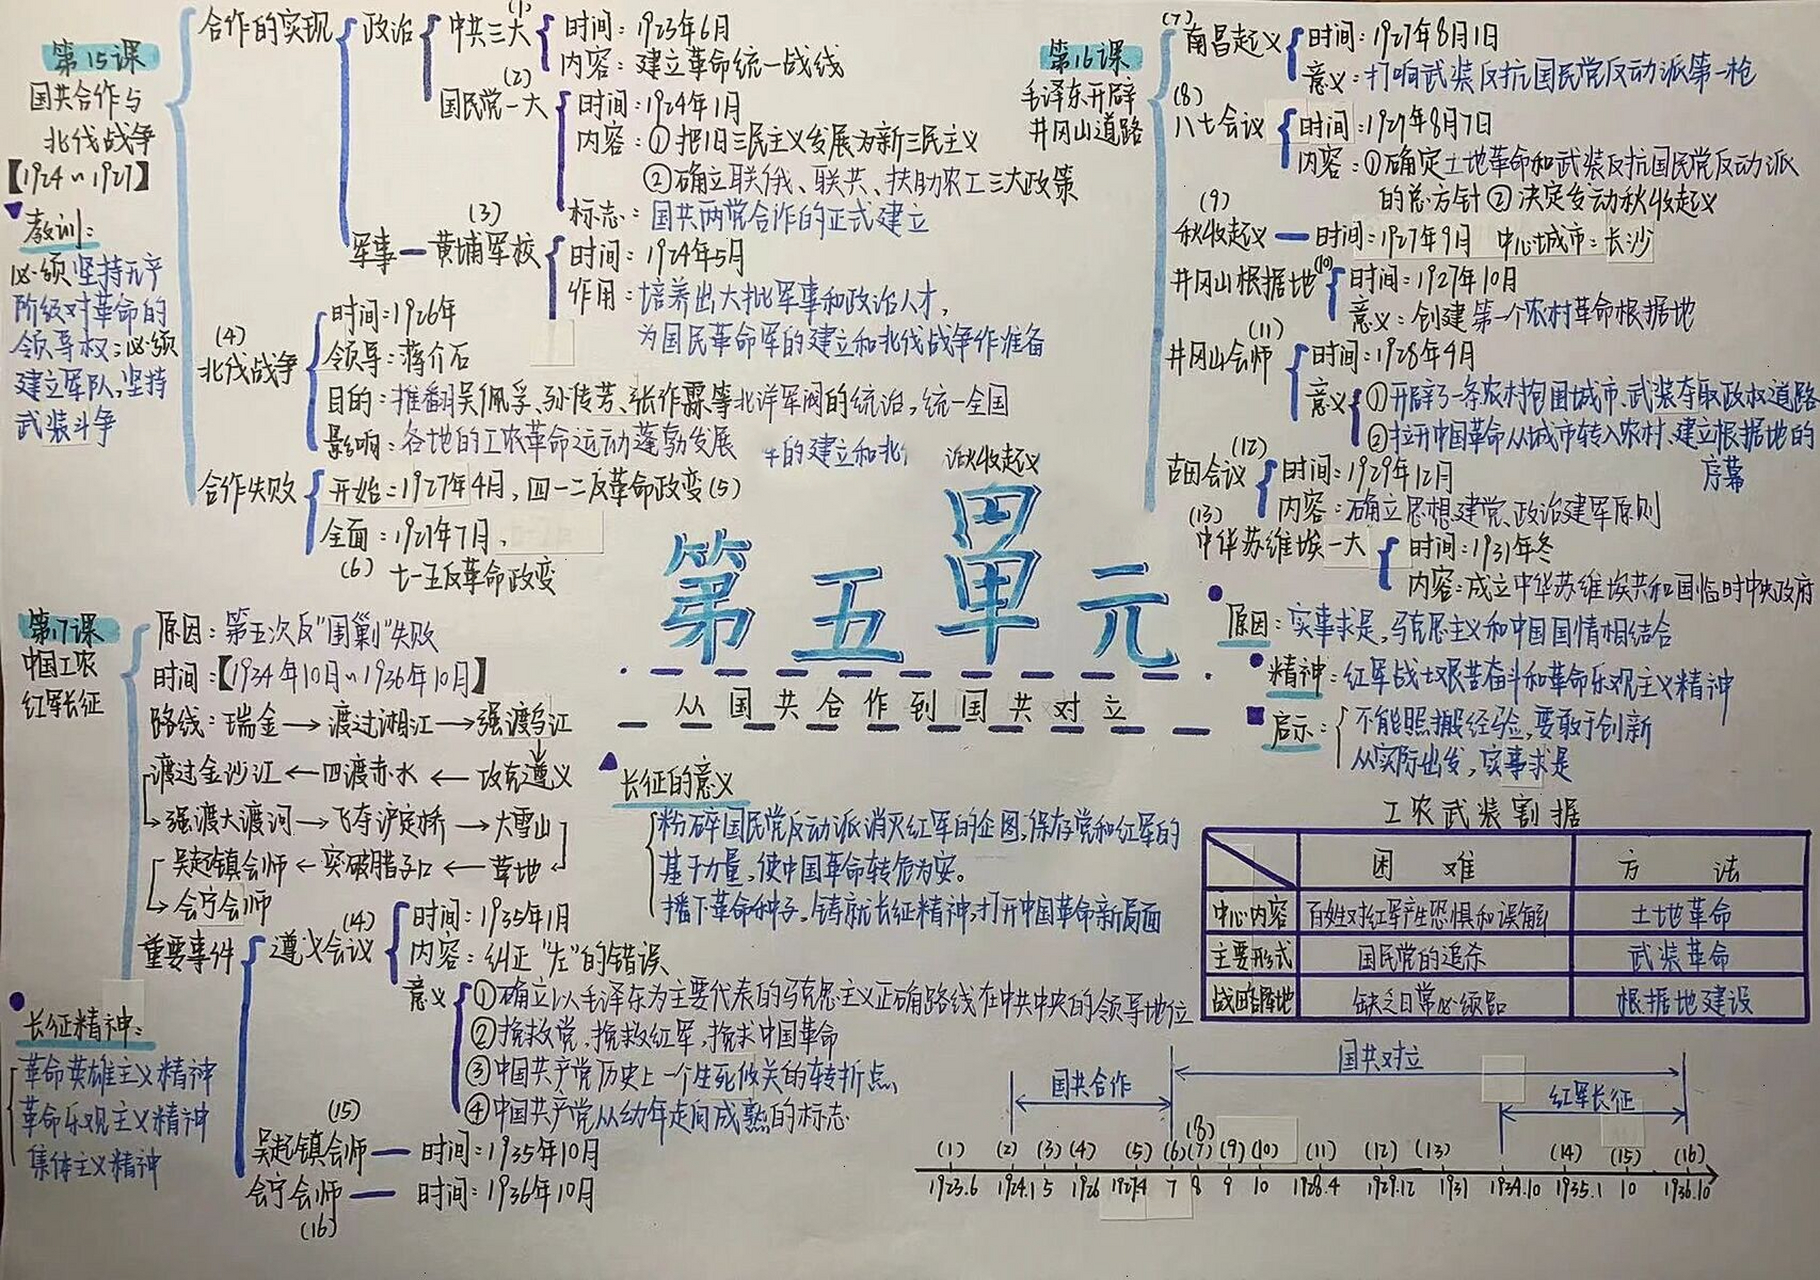 第15课
国共合作与
北伐战争
【1924~1927】
教训:
必须坚持无产
阶级对革命的
领导权;必须
建立军队,坚持
武装斗争
合作的实现
政治
中共三大
(1)
时间:1923年6月
内容:建立革命统一战线
(2)
国民党一大
时间:1924年1月
内容:①把旧三民主义发展为新三民主义
②确立联俄、联共、扶助农工三大政策
标志:国共两党合作的正式建立
(3)
军事—黄埔军校
时间:1924年5月
作用:培养出大批军事和政治人才,
为国民革命军的建立和北伐战争作准备
(4)
北伐战争
时间:1926年
领导:蒋介石
目的:推翻吴佩孚、孙传芳、张作霖等北洋军阀的统治,统一全国
影响:各地的工农革命运动蓬勃发展
的建立和北
秋收起义
合作失败
开始:1927年4月,四一二反革命政变(5)
全面:1927年7月、
(6) 七一五反革命政变
第16课
毛泽东开辟
井冈山道路
(7)
南昌起义
时间:1927年8月1日
意义:打响武装反抗国民党反动派第一枪
(8)
八七会议
时间:1927年8月7日
内容:①确定土地革命和武装反抗国民党反动派
的总方针②决定发动秋收起义
(9)
秋收起义—时间:1927年9月 中心城市:长沙
井冈山根据地(10)
时间:1927年10月
意义:创建第一个农村革命根据地
(11)
井冈山会师
时间:1928年4月
意义
①开辟了一条农村包围城市、武装夺取政权道路
②拉开中国革命从城市转入农村、建立根据地的
序幕
(12)
古田会议
时间:1929年12月
内容:确立思想建党、政治建军原则
(13)
中华苏维埃一大
时间:1931年冬
内容:成立中华苏维埃共和国临时中央政府
原因:实事求是,马克思主义和中国国情相结合
精神:红军战士艰苦奋斗和革命乐观主义精神
启示:
不能照搬经验,要敢于创新
从实际出发,实事求是
第五单元
从国共合作到国共对立
第17课
中国工农
红军长征
原因:第五次反"围剿"失败
时间:【1934年10月~1936年10月】
路线:瑞金→渡过湘江→强渡乌江
渡过金沙江←四渡赤水←攻克遵义
强渡大渡河→飞夺泸定桥→大雪山
吴起镇会师←突破腊子口←草地
会宁会师
重要事件
(14)
遵义会议
时间:1935年1月
内容:纠正"左"的错误
意义
①确立以毛泽东为主要代表的马克思主义正确路线在中共中央的领导地位
②挽救党,挽救红军,挽救中国革命
③中国共产党历史上一个生死攸关的转折点、
④中国共产党从幼年走向成熟的标志
(15)
吴起镇会师—时间:1935年10月
会宁会师—时间:1936年10月
(16)
长征精神:
革命英雄主义精神
革命乐观主义精神
集体主义精神
长征的意义
粉碎国民党反动派消灭红军的企图,保存党和红军的
基干力量,使中国革命转危为安。
播下革命种子,铸就长征精神,打开中国革命新局面
工农武装割据
困难 方法
中心内容 百姓对红军产生恐惧和误解 土地革命
主要形式 国民党的追杀 武装革命
战略阵地 缺乏日常必须品 根据地建设
国共对立
国共合作
红军长征
(1) (2) (3) (4) (5) (6) (7) (8) (9) (10) (11) (12) (13) (14) (15) (16)
1923.6 1924.1 5 1926 1927.4 7 8 9 10 1928.4 1929.12 1931 1934.10 1935.1 10 1936.10